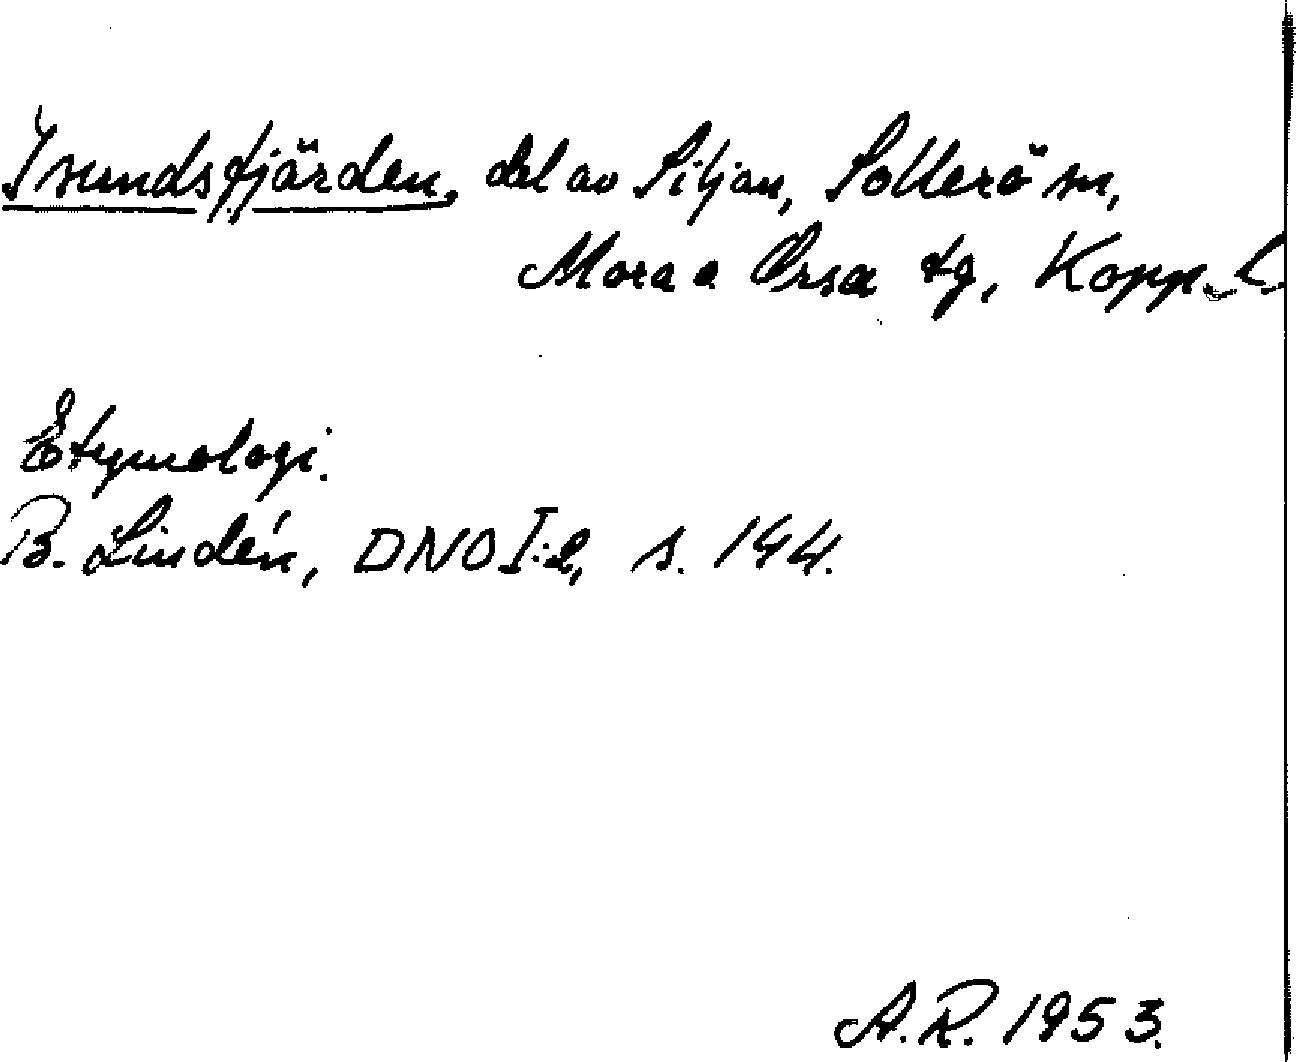 Isundsfjärden, del av Siljan, Sollerö sn,
Mora o Orsa tg, Kopp. l.
Etymologi.
B. Lindén, DNO I:2, s. 144.
A.R. 1953.